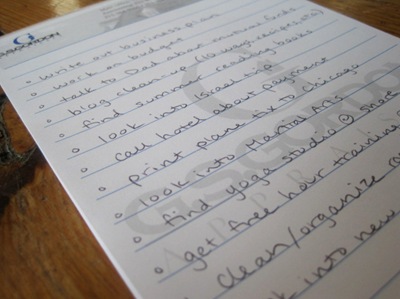 GSGORDON
write out business plan
work on budget
talk to Dad about mutual funds
blog cleanup (
find summer reading books
look into Israel trip
call hotel about payment
print plane tix to Chicago
look into Martial Arts
find yoga studio ☺
get free hour training
clean/organize
into new
GSGORDON